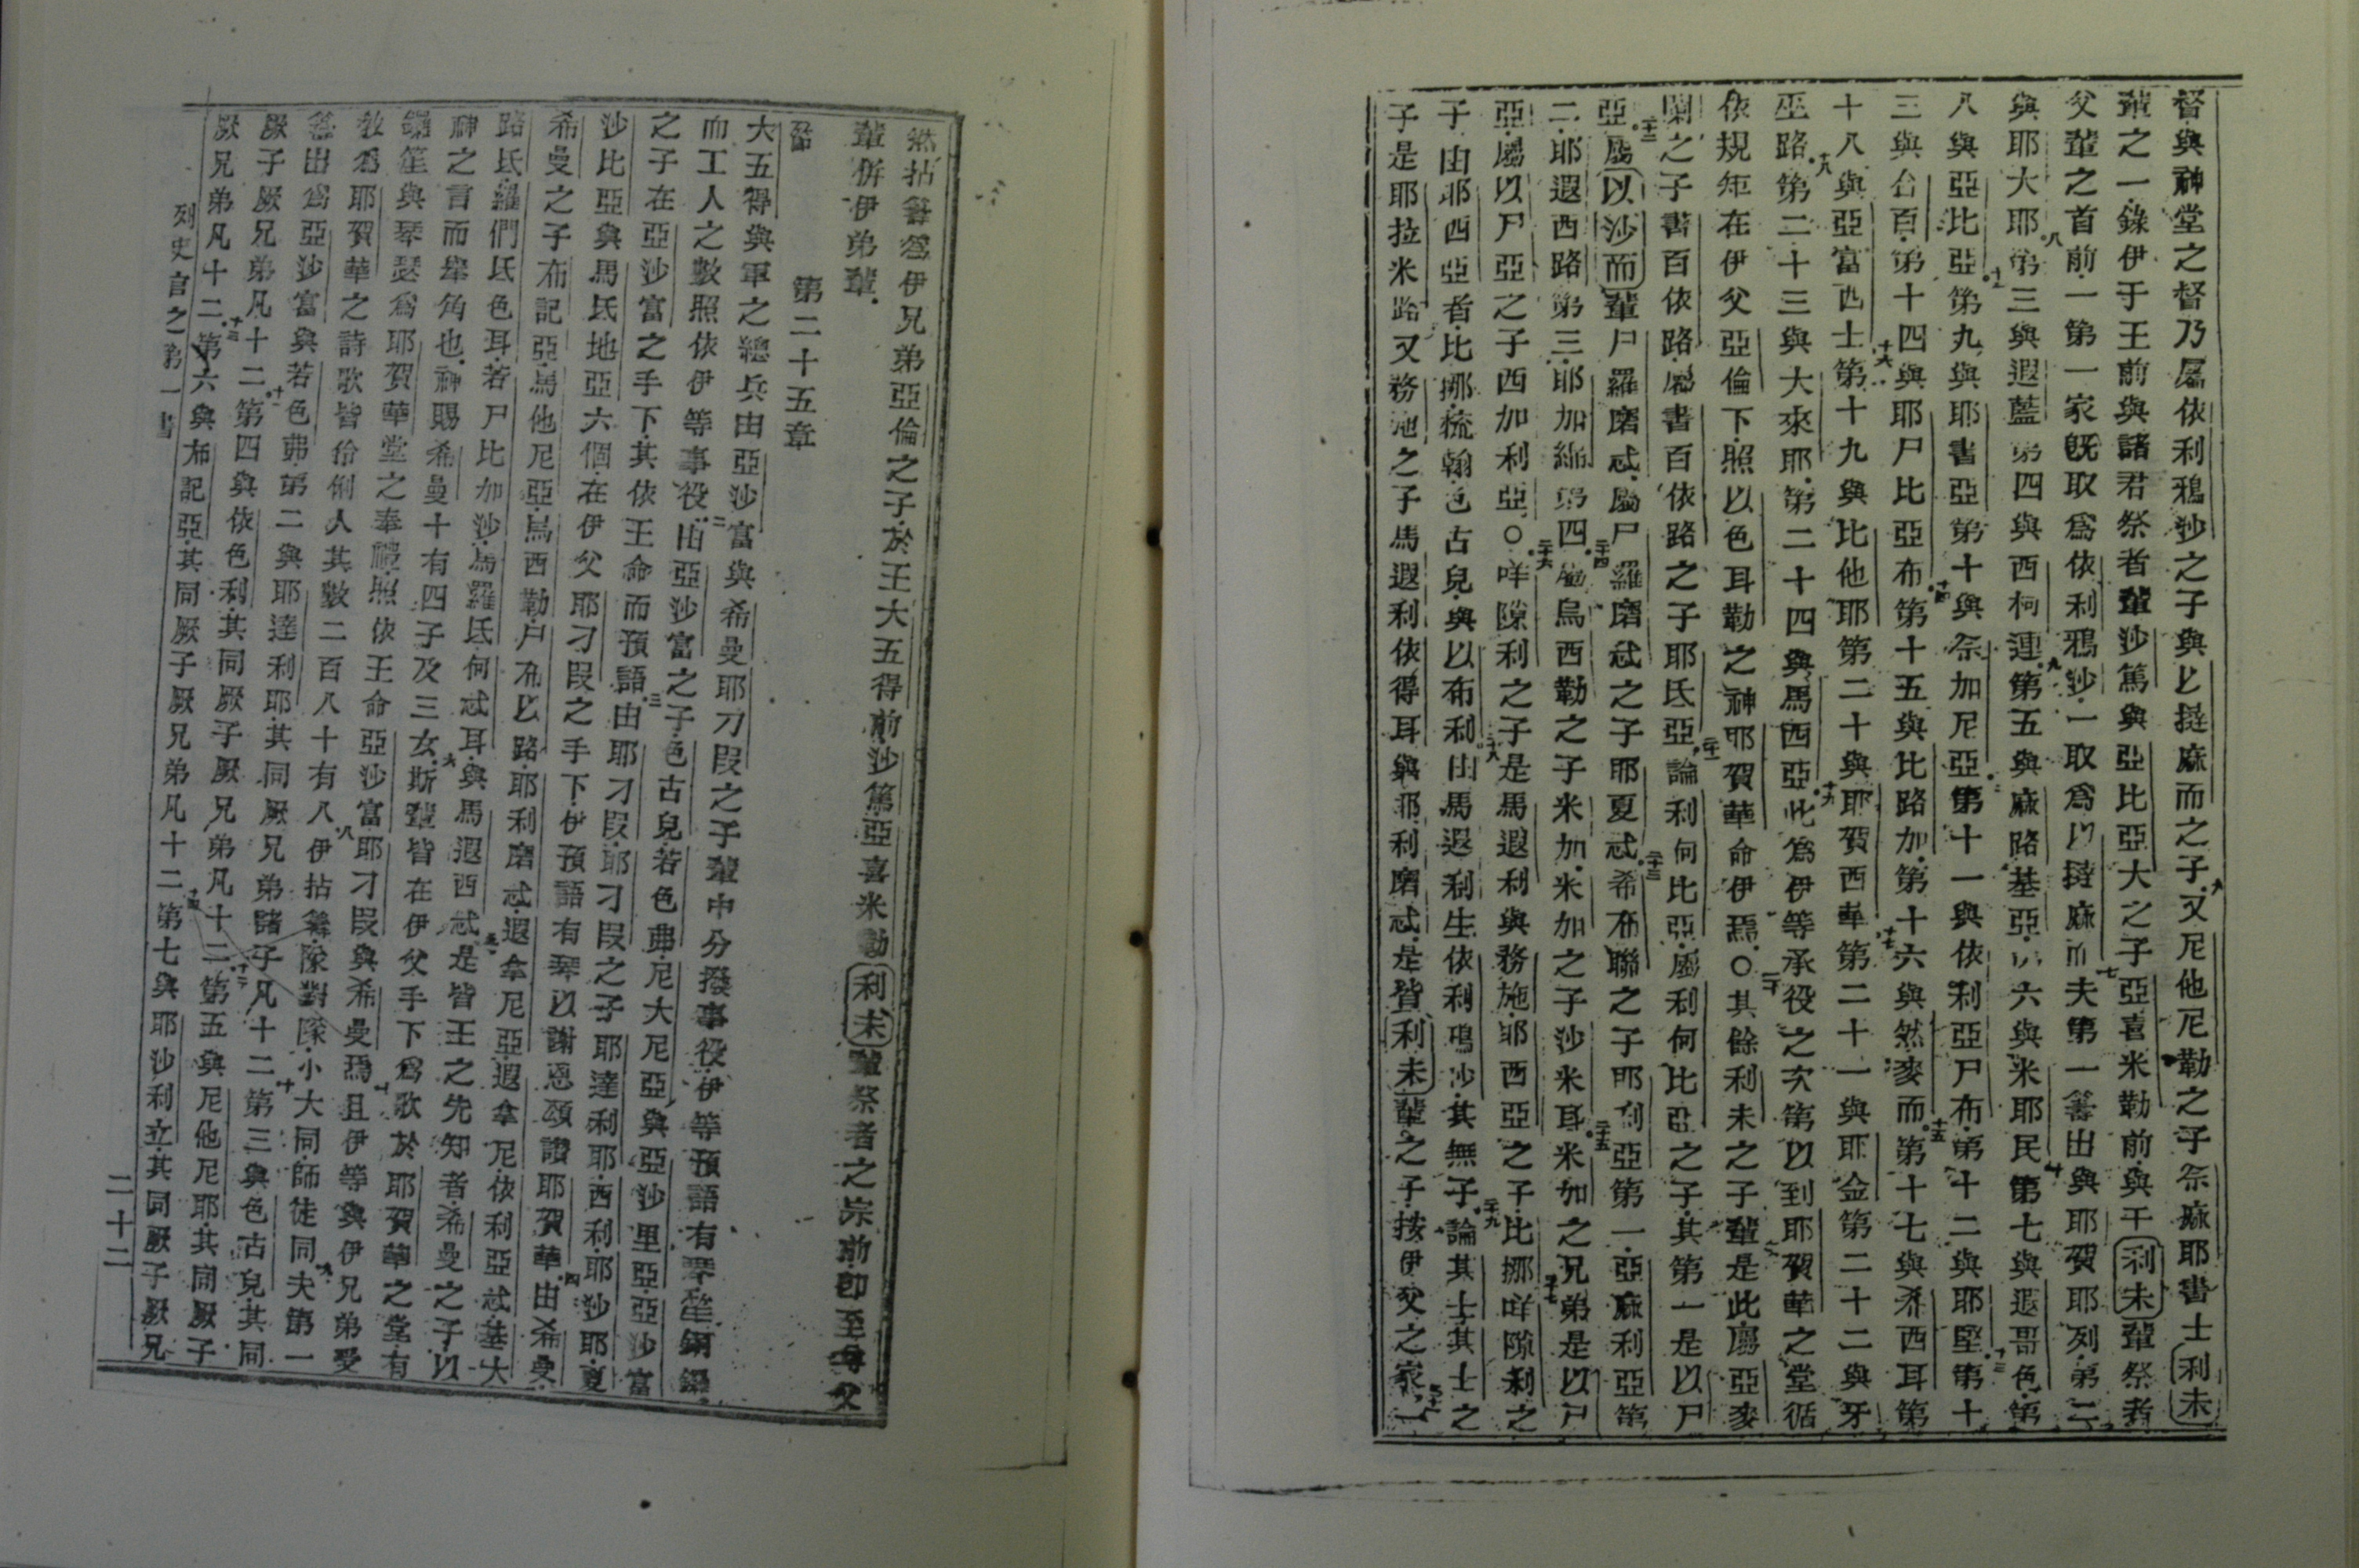 督與神堂之督乃屬依利鴉沙之子與以撻麻而之子六又尼他尼勒之子示麻耶書士利未
輩之一錄伊于王前與諸君祭者輩沙篤與亞比亞大之子亞喜米勒前與于利未輩祭者
父輩之首前一第一家既取為依利鴉沙一取為以撻麻而七夫第一籌出與耶賀耶列第二
與耶大耶八第三與遐藍第四與西柯連九第五與麻路基亞第六與米耶民十第七與遐哥色第
八與亞比亞十一第九與耶書亞第十與示加尼亞十二第十一與依利亞尸布第十二與耶堅十三第十
三與合百第十四與耶尸比亞布十四第十五與比路加第十六與然麥而十五第十七與希西耳第
十八與亞富西士十六第十九與比他耶第二十與耶賀西車十七第二十一與耶金第二十二與牙
巫路十八第二十三與大來耶第二十四與馬西亞十九此為伊等承役之次第以到耶賀華之堂循
依規矩在伊父亞倫下照以色耳勒之神耶賀華命伊焉○二十其餘利未之子輩是此屬亞麥
闌之子書百依路屬書百依路之子耶氐亞二十一論利何比亞屬利何比亞之子其第一是以尸
亞二十二屬以沙而輩尸羅磨忒屬尸羅磨忒之子耶夏忒二十三希布聯之子耶利亞第一亞麻利亞第
二耶遐西路第三耶加綿第四二十四屬烏西勒之子米加米加之子沙米耳二十五米加之兄弟是以尸
亞屬以尸亞之子西加利亞○二十六咩隙利之子是馬遐利與務施耶西亞之子比挪二十七咩隙利之
子由耶西亞者比挪梳翰色古兒與以布利二十八由馬遐利生依利鴉沙其無子二十九論其士其士之
子是耶拉米路又務施之子馬遐利依得耳與耶利磨忒是皆利未輩之子按伊父之家三十一
然拈籌為伊兄弟亞倫之子於王大五得前沙篤亞喜米勒利未輩祭者之宗前即至尊父
輩併伊弟輩
第二十五章
大五得與軍之總兵由亞沙富與希曼耶刀段之子輩中分撥事役伊等預語有琴笙鑼
而工人之數照依伊等事役二由亞沙富之子色古兒若色弗尼大尼亞與亞沙里亞亞沙富
之子在亞沙富之手下其依王命而預語三由耶刀段耶刀段之子耶達利耶西利耶沙耶夏
沙比亞與馬氐地亞六個在伊父耶刀段之手下伊預語有琴以謝恩頌讚耶賀華四由希曼
希曼之子布記亞馬他尼亞烏西勒尸布以路耶利磨忒遐拿尼亞遐拿尼依利亞忒基大
路氐羅們氐色耳若尸比加沙馬羅氐何忒耳與馬遐西忒五是皆王之先知者希曼之子以
神之言而舉角也神賜希曼十有四子及三女六斯輩皆在伊父手下為歌於耶賀華之堂有
鑼笙與琴瑟為耶賀華堂之奉禮照依王命亞沙富耶刀段與希曼焉七且伊等與伊兄弟受
教為耶賀華之詩歌皆伶俐人其數二百八十有八八伊拈籌隊對隊小大同師徒同九夫第一
籌出為亞沙富與若色弗第二與耶達利耶其同厥兄弟諸子凡十二十第三與色古兒其同
厥子厥兄弟凡十二十一第四與依色利其同厥子厥兄弟凡十二十二第五與尼他尼耶其同厥子
厥兄弟凡十二十三第六與布記亞其同厥子厥兄弟凡十二十四第七與耶沙利立其同厥子厥兄
列史官之第一書
二十二